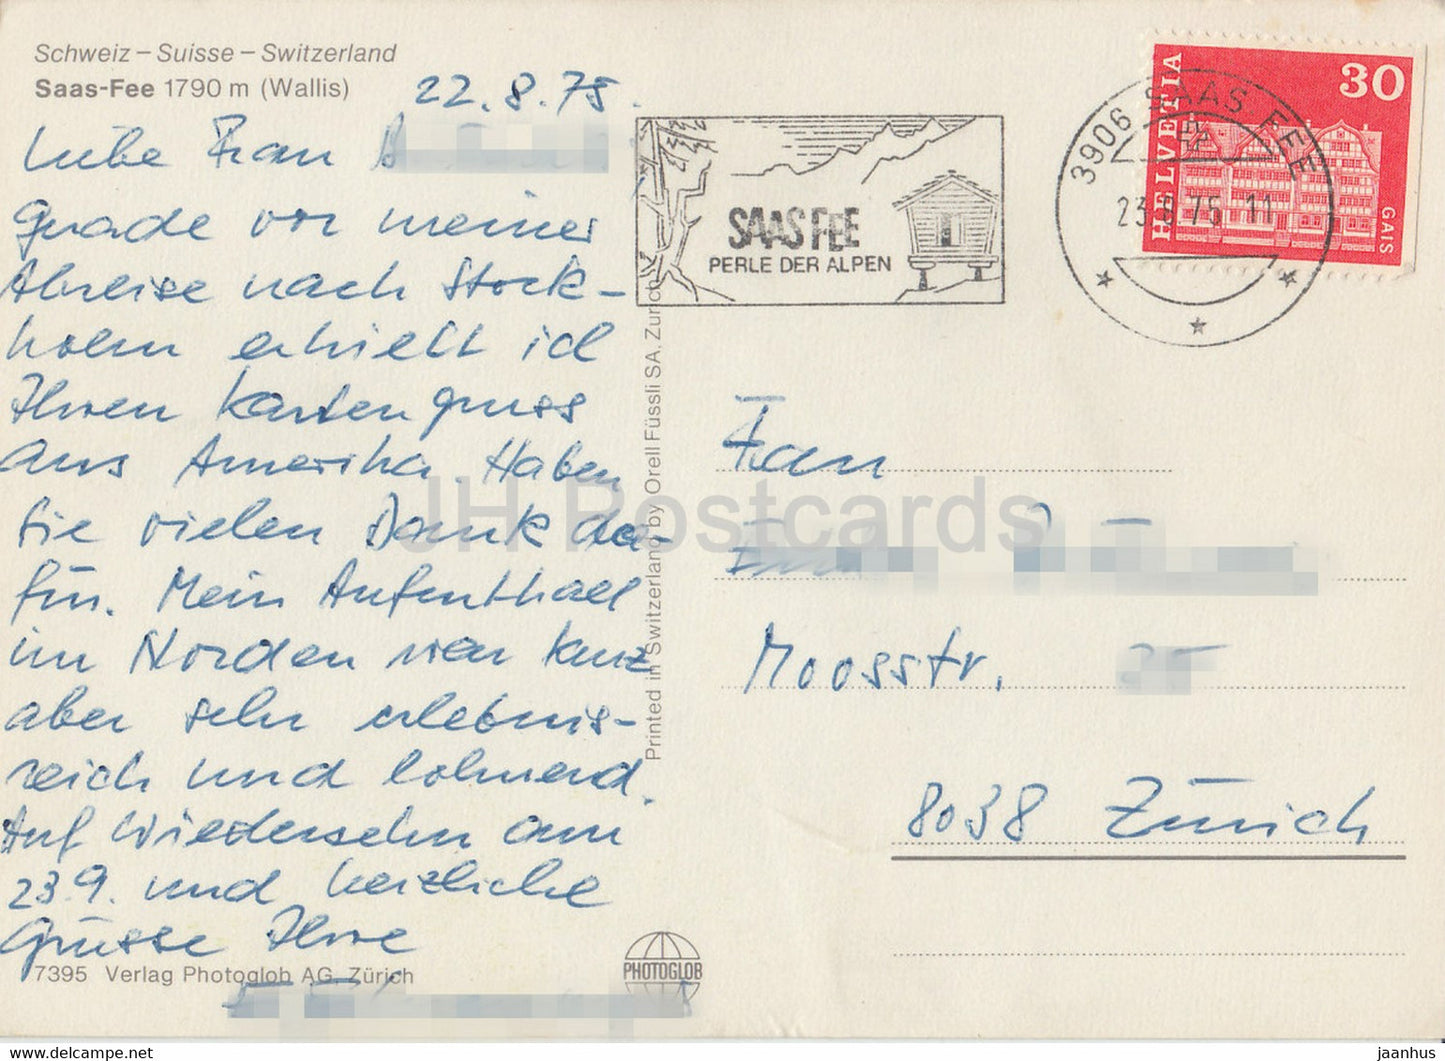 Schweiz – Suisse – Switzerland
Saas-Fee 1790 m (Wallis)
22.8.75.
Liebe Frau
Gerade vor meiner
Abreise nach Stock-
holm erhielt ich
Ihren Kartengruss
aus Amerika. Haben
Sie vielen Dank da-
für. Mein Aufenthalt
im Norden war kurz
aber sehr erlebnis-
reich und lohnend.
Auf Wiedersehn am
23.9. und herzliche
Grüsse Ihre
7395 Verlag Photoglob AG, Zürich
PHOTOGLOB
Printed in Switzerland by Orell Füssli SA, Zürich
SAAS FEE
PERLE DER ALPEN
3906 SAAS FEE
23.8.75. 11
HELVETIA
30
GAIS
Frau
Moosstr.
8038 Zürich
JH Postcards
www.delcampe.net
jaanhus